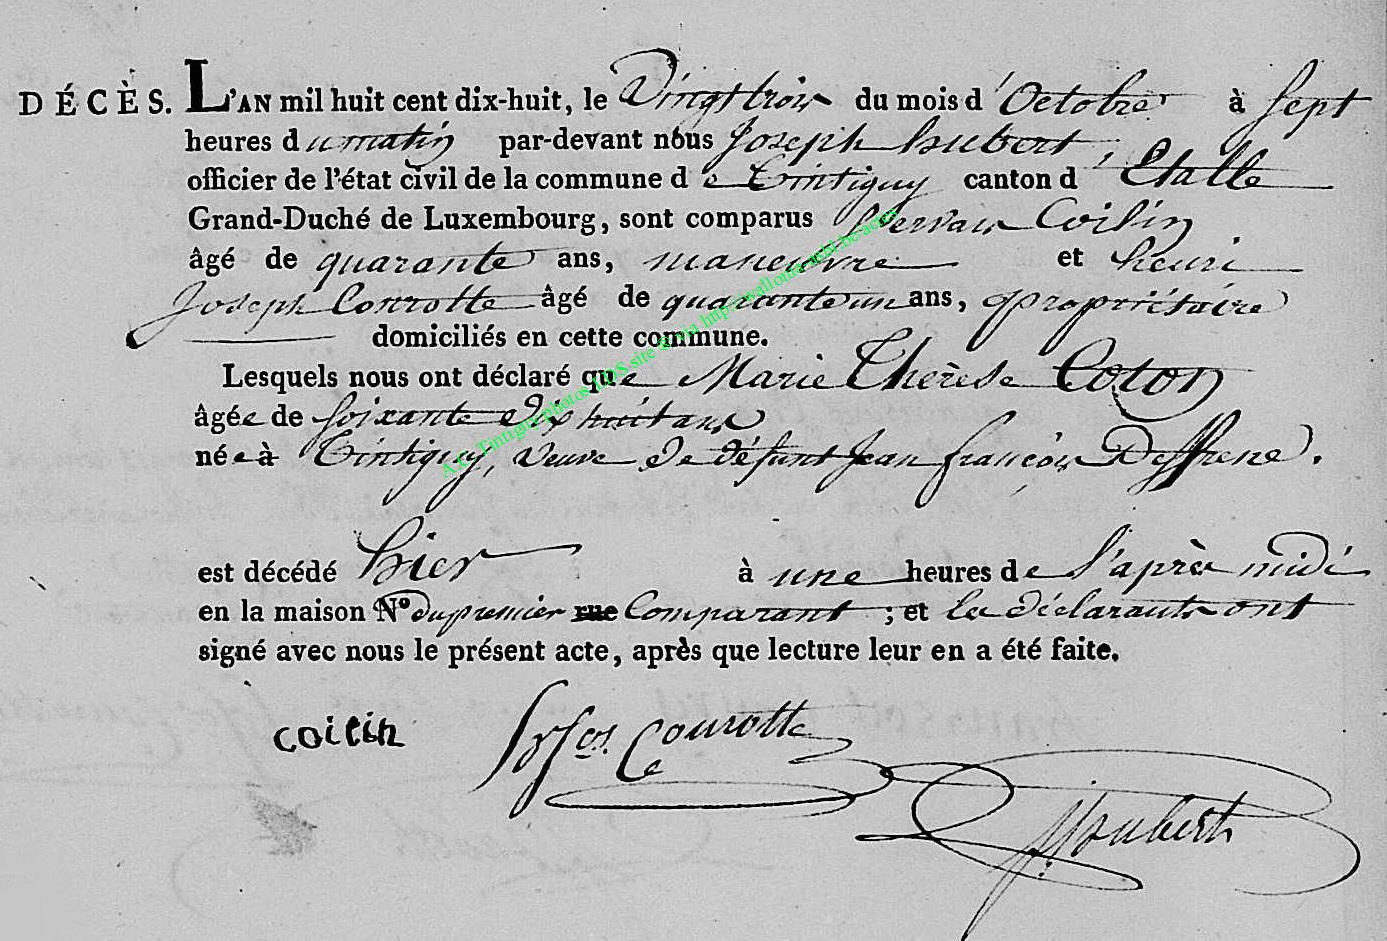 DÉCÈS. L'AN mil huit cent dix-huit, le Vingt trois du mois d'Octobre à Sept
heures du matin par-devant nous Joseph hubert,
officier de l'état civil de la commune de Tintigny canton d Etalle
Grand-Duché de Luxembourg, sont comparus Gervais Coilin
âgé de quarante ans, maneuvre et henri
Joseph Conrotte âgé de quarante un ans, propriétaire
domiciliés en cette commune.
Lesquels nous ont déclaré que Marie Thérèse Coton
âgée de soixante dix huit ans
née à Tintigny, veuve de défunt Jean françois
est décédé hier à une heures de l'après midi
en la maison N° du premier rue Comparant ; et les déclarants ont
signé avec nous le présent acte, après que lecture leur en a été faite.
coilin Conrotte
Hubert
A.C. Tintigny photos LDS site @ via http://wallonia-asbl.be/actes